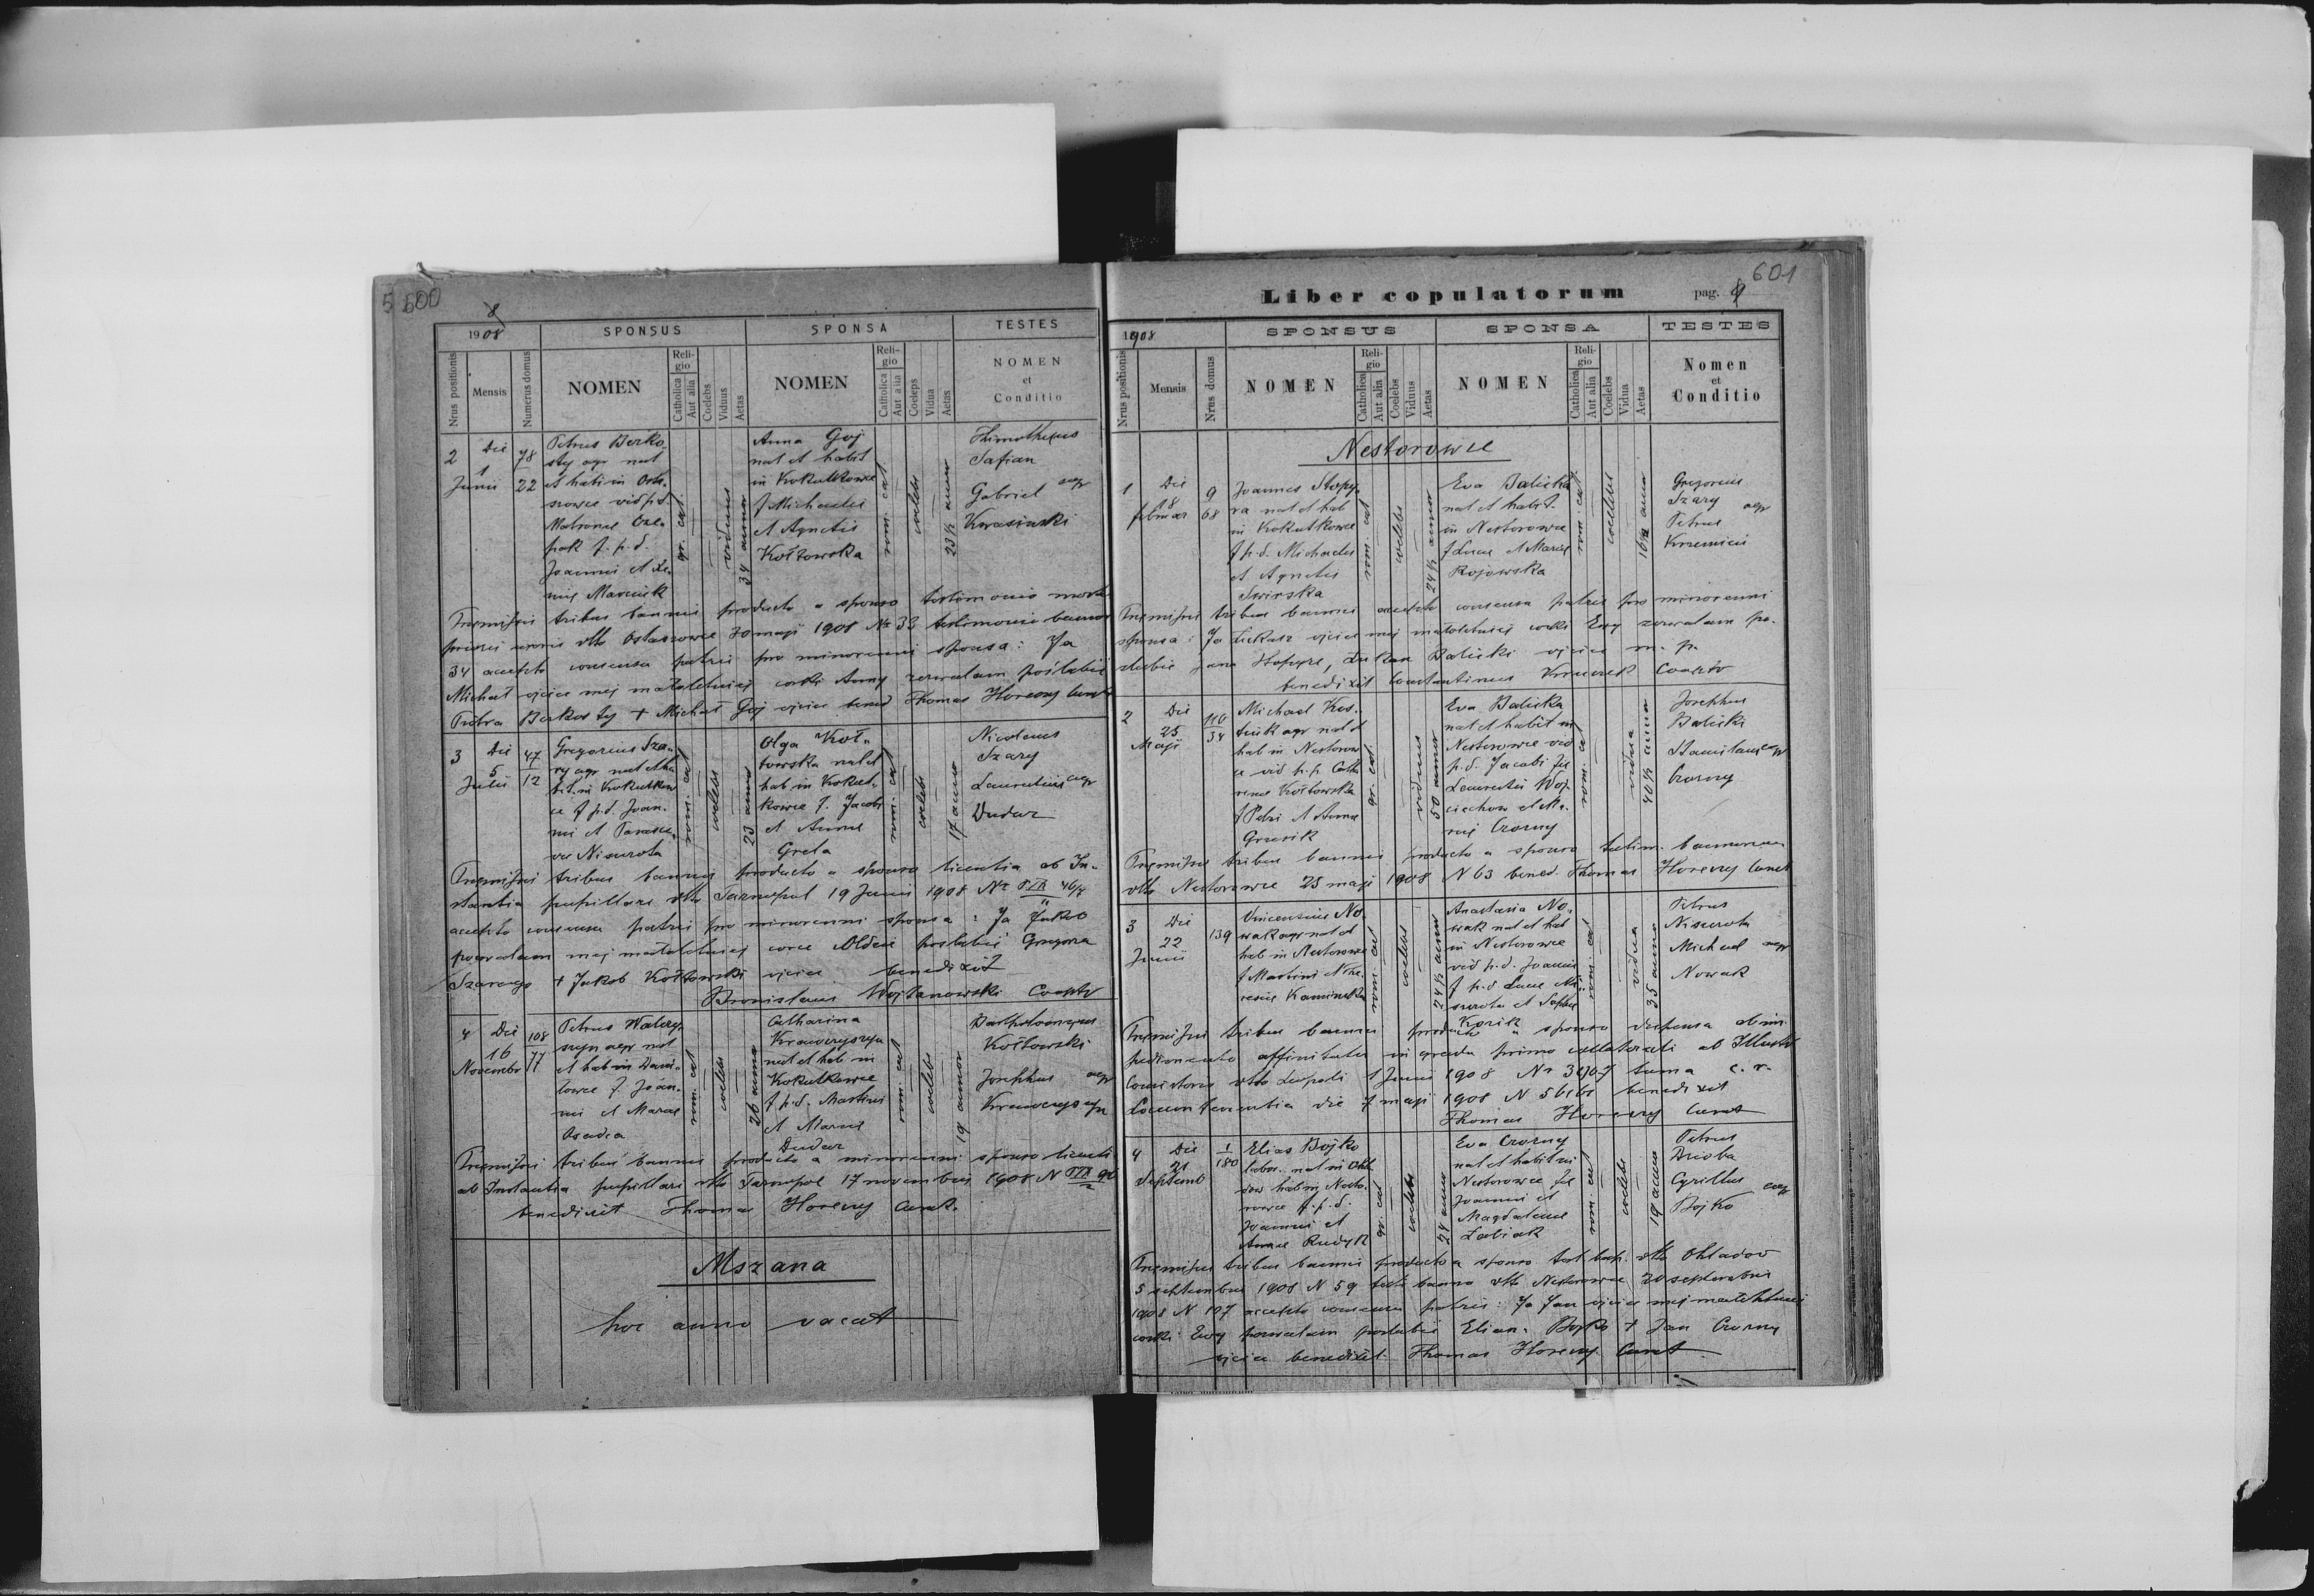 5 600
8
1908
SPONSUS
SPONSA
TESTES
Nrus positionis
Mensis
Numerus domus
NOMEN
Religio
Catholica
Aut alia
Coelebs
Viduus
Aetas
NOMEN
Religio
Catholica
Aut alia
Coeleps
Vidua
Aetas
NOMEN
et
Conditio
2
Die
1
Junii
78
22
Petrus Berko
sty agr nat
et hab in
vid p.d.
Matronae
f. p. d.
Joannis et
Marciuk
gr. cat
viduus
34 anno
Anna Goj
nat et habit
in Kokutkowce
f Michaelis
et Agnetis
Kołtowska
rom. cat
coelebs
23 ½ anno
Thimotheus
Safian
Gabriel agr
Kwasinski
Praemissis tribus bannis producto a sponso testimonio
uxoris dtto Ostaszowce 30 maji 1908 Nr 33 testimonio
34 accepto consensu patris pro minorenni sponsa: Ja
Michał ojciec mej małoletniej corki Anny zezwalam poślubić
Piotra Berkosty + Michał Goj ojciec bened Thomas Horeczy
3
Die
5
Julii
47
12
Gregorius Sza-
ry agr nat et ha
bit. in Kokutkow
ce f p.d. Joan-
nis et
Nisurota
rom. cat
coelebs
23 anno
Olga Koł-
towska nat et
hab in Kokut-
kowce f. Jacobi
et Annae
Greta
rom. cat
coelebs
17 anno
Nicolaus
Szary
Laurentius agr
Dudar
Praemissis tribus bannis producto a sponso licentia ab In-
stantia pupillari dtto Tarnopol 19 Junii 1908 Nr
accepto consensu patris pro minorenni sponsa: Ja Jakob
pozwalam mej małoletniej corce poslubić Gregora
Szarego + Jakob Kołtowski ojciec benedixit
Bronislaus Wojtanowski Cooptr
4
Die
16
Novembr
108
77
Petrus
agr nat
et hab in
f. Joan-
nis et Mariae
Osadca
rom. cat
coelebs
26 anno
Catharina
nat et hab in
Kokutkowce
f p.d. Martini
et Mariae
Dudar
rom. cat
coelebs
19 annor
Bartholomaeus
Kołtowski
Josephus agr
Praemissis tribus bannis producto a minorenni sponso
ab Instantia pupillari dtto Tarnopol 17 novembris 1908 N
benedixit Thomas Horeczy Curat.
Mszana
hoc anno vacat
601
Liber copulatorum
pag. 9
1908
SPONSUS
SPONSA
TESTES
Nrus positionis
Mensis
Nrus domus
NOMEN
Religio
Catholica
Aut alia
Coelebs
Viduus
Aetas
NOMEN
Religio
Catholica
Aut alia
Coelebs
Vidua
Aetas
Nomen
et
Conditio
Nestorowce
1
Die
18
februar
9
68
Joannes Stopy-
ra nat et hab
in Kokutkowce
f p.d. Michaelis
et Agnetis
Swirska
rom. cat
coelebs
24 ½ anno
Eva Balicka
nat et habit.
in Nestorowce
f Lucae et Mariae
Rojowska
rom. cat.
coelebs
16 ½ anno
Gregorius
Szary agr
Petrus
Praemissis tribus bannis accepto consensu patris pro minorenni
sponsa: Ja Łukasz ojciec mej małoletniej corki Ewy zezwalam po-
slubic Jana Stopyre, Łukasz Balicki ojciec m. p.
benedixit Constantinus Cooptr
2
Die
25
Maji
110
34
Michael Kos-
tiuk agr nat et
hab in Nestorow
ce vid p.p. Catha
rinae Kołtowska
f Petri et Annae
Grzesik
gr. cat
viduus
50 anno
Eva Balicka
nat et habit in
Nestorowce vid
p.d. Jacobi fil
Laurentii Woj-
ciechow et
Czorny
rom. cat
vidua
40 ½ anno
Josephus
Balicki
Stanislaus agr
Czorny
Praemissis tribus bannis producto a sponso testim.
dtto Nestorowce 25 maji 1908 N 63 bened. Thomas Horeczy Curat
3
Die
22
Junii
139
Vincentius No-
wak agr nat et
hab in Nestorowce
f Martini et
Kaminska
rom. cat
coelebs
24 ½ anno
Anastasia No-
wak nat et hab
in Nestorowce
vid p.d. Joannis
f p.d Lucae Ni-
surota et Sophiae
Kozik
rom. cat
vidua
35 anno
Petrus
Nisurota
Michael agr
Nowak
Praemissis tribus bannis producto a sponso dispensa ab im-
pedimento affinitatis in gradu primo collaterali ab Illustr
Consistorio dtto Leopoli 1 Junii 1908 Nr c. r.
Locumtenentia die 7 maji 1908 N 56161 benedixit
Thomas Horeczy Curat
4
Die
21
Septemb
1
180
Elias Bojko
labor. nat in Ohla
dow hab in Nesto-
rowce f. p. d.
Joannis et
Annae Rudyk
gr. cat
coelebs
24 anno
Eva Czorny
nat et habit in
Nestorowce fil
Joannis et
Magdalenae
Łabiak
rom. cat
coelebs
19 anno
Petrus
Dzioba
Cyrillus agr
Bojko
Praemissis tribus bannis producto a sponso test bapt. dtto Ohladow
5 septembris 1908 N 59 testi banno dtto Nestorowce 20 septembris
1908 N 107 accepto consensu patris: Ja Jan ojciec mej małoletniej
corki Ewy pozwalam poslubić Elian. Bojko + Jan Czorny
ojciec benedixit Thomas Horeczy Curat